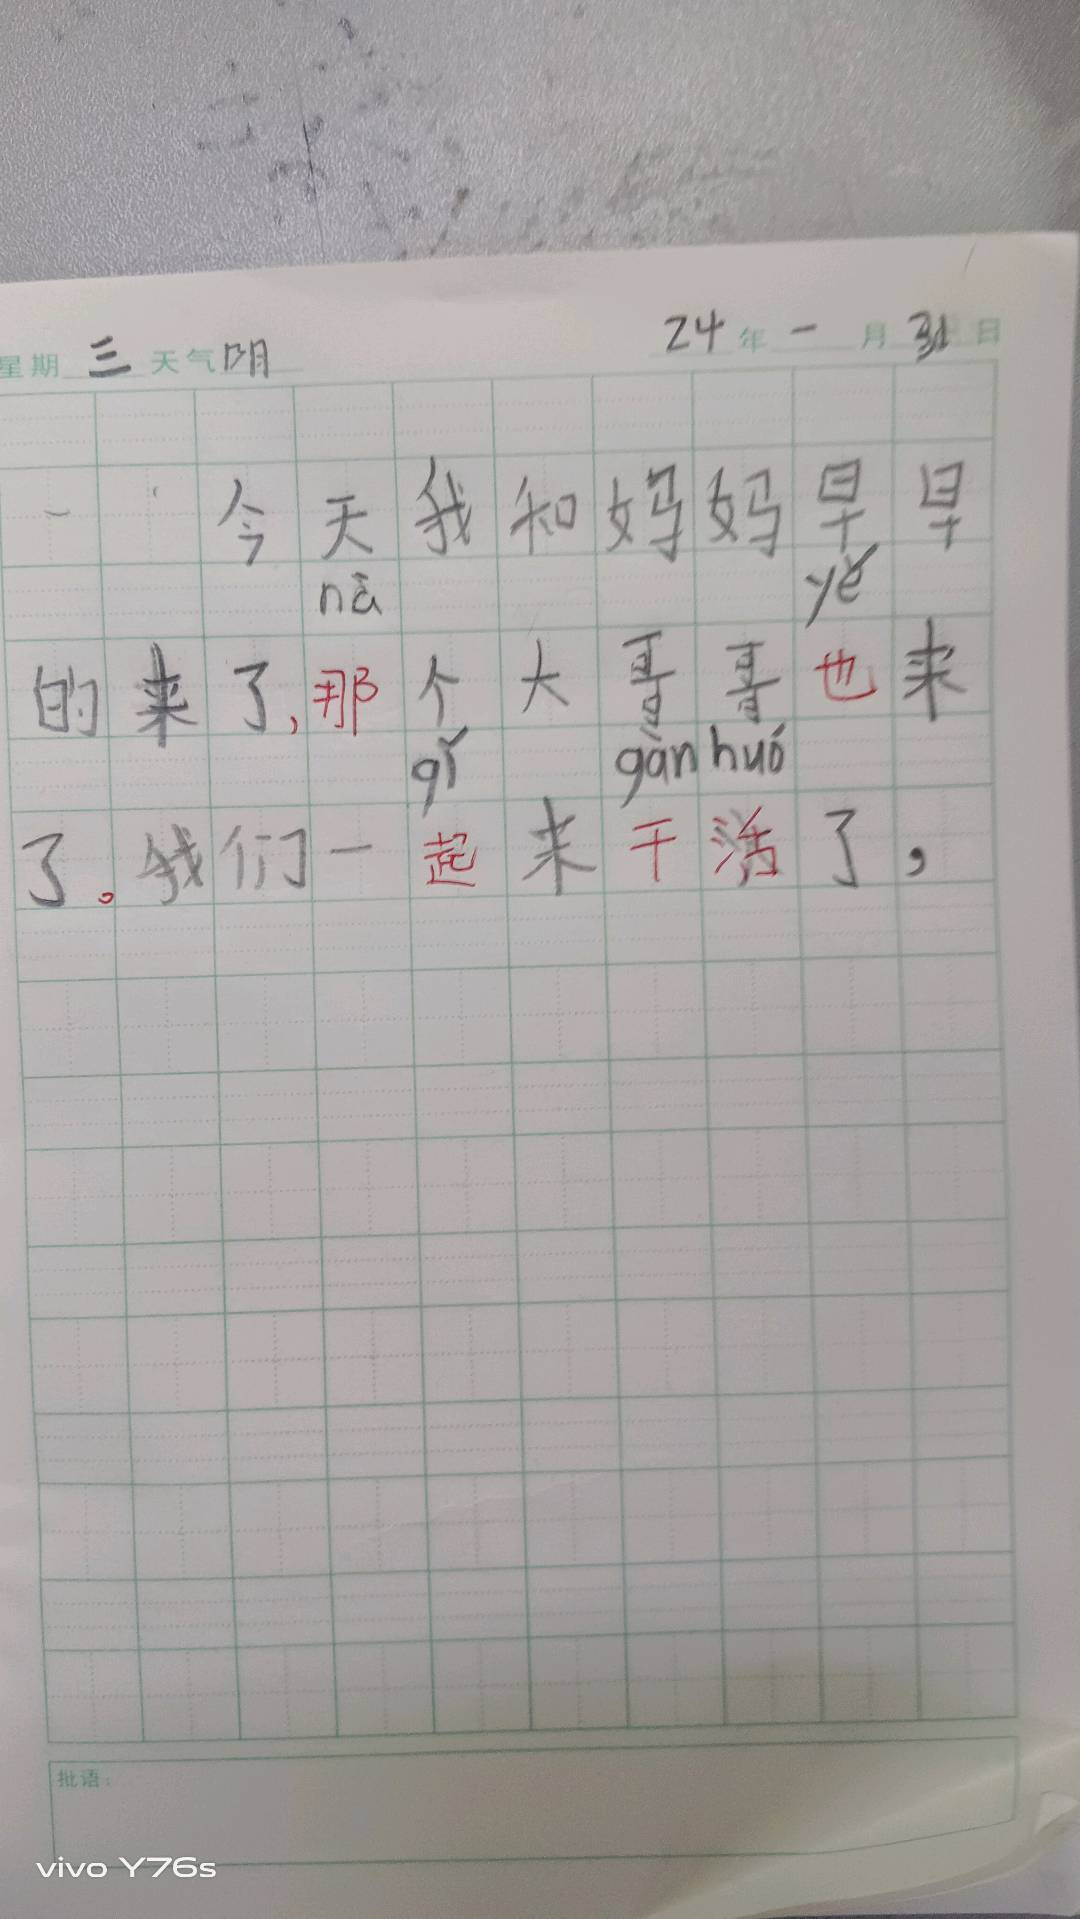 星期 三 天气 阴 24 年 一 月 31 日
今天我和妈妈早早
nà yě
的来了,那个大哥哥也来
qǐ gàn huó
了。我们一起来干活了,
批语:
vivo Y76s